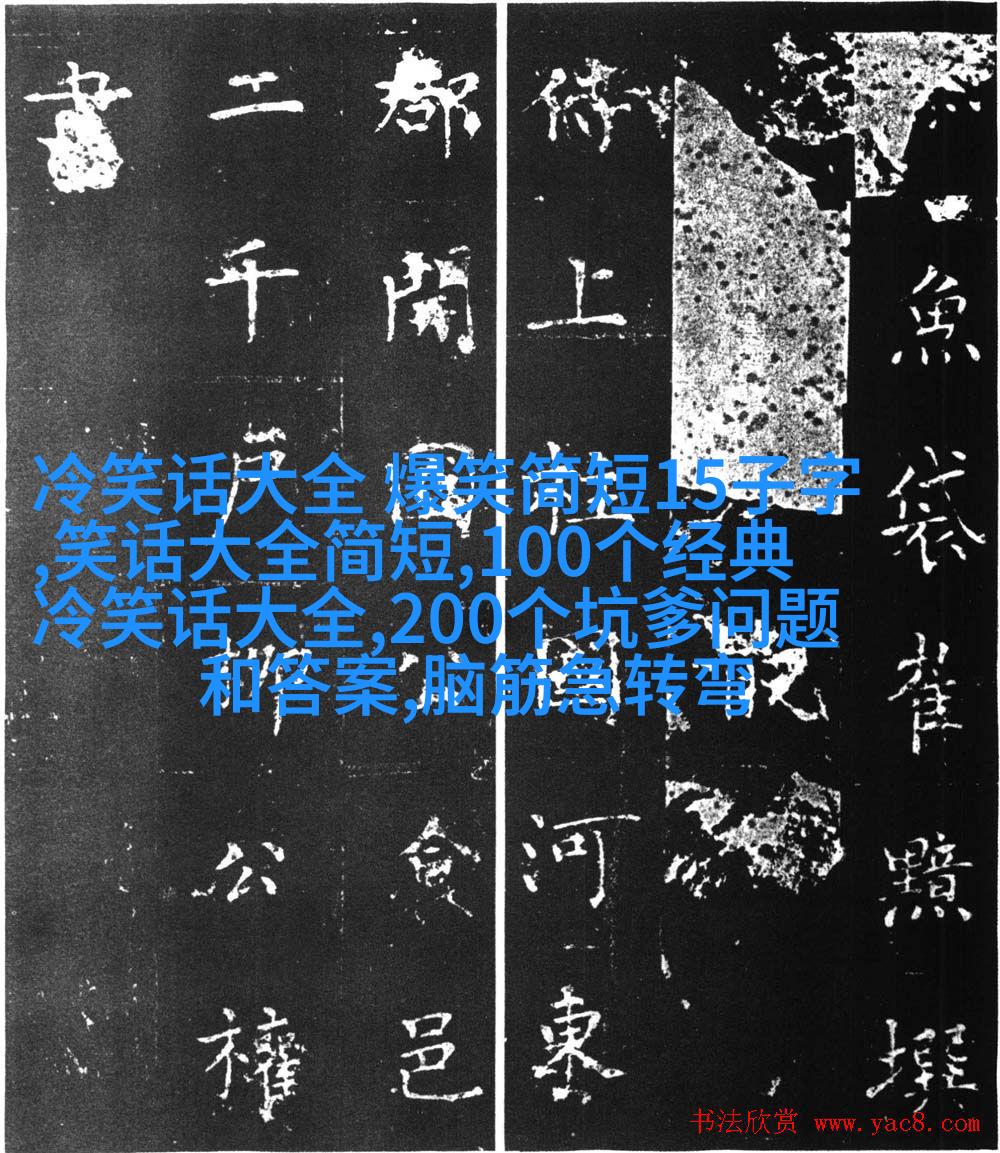 魚袋崔黯撰
侍上柱國河東
郡開國公食邑
二千戶柳公權
書
冷笑话大全 爆笑简短15子字
,笑话大全简短,100个经典
冷笑话大全,200个坑爹问题
和答案,脑筋急转弯
书法欣赏 www.yac8.com